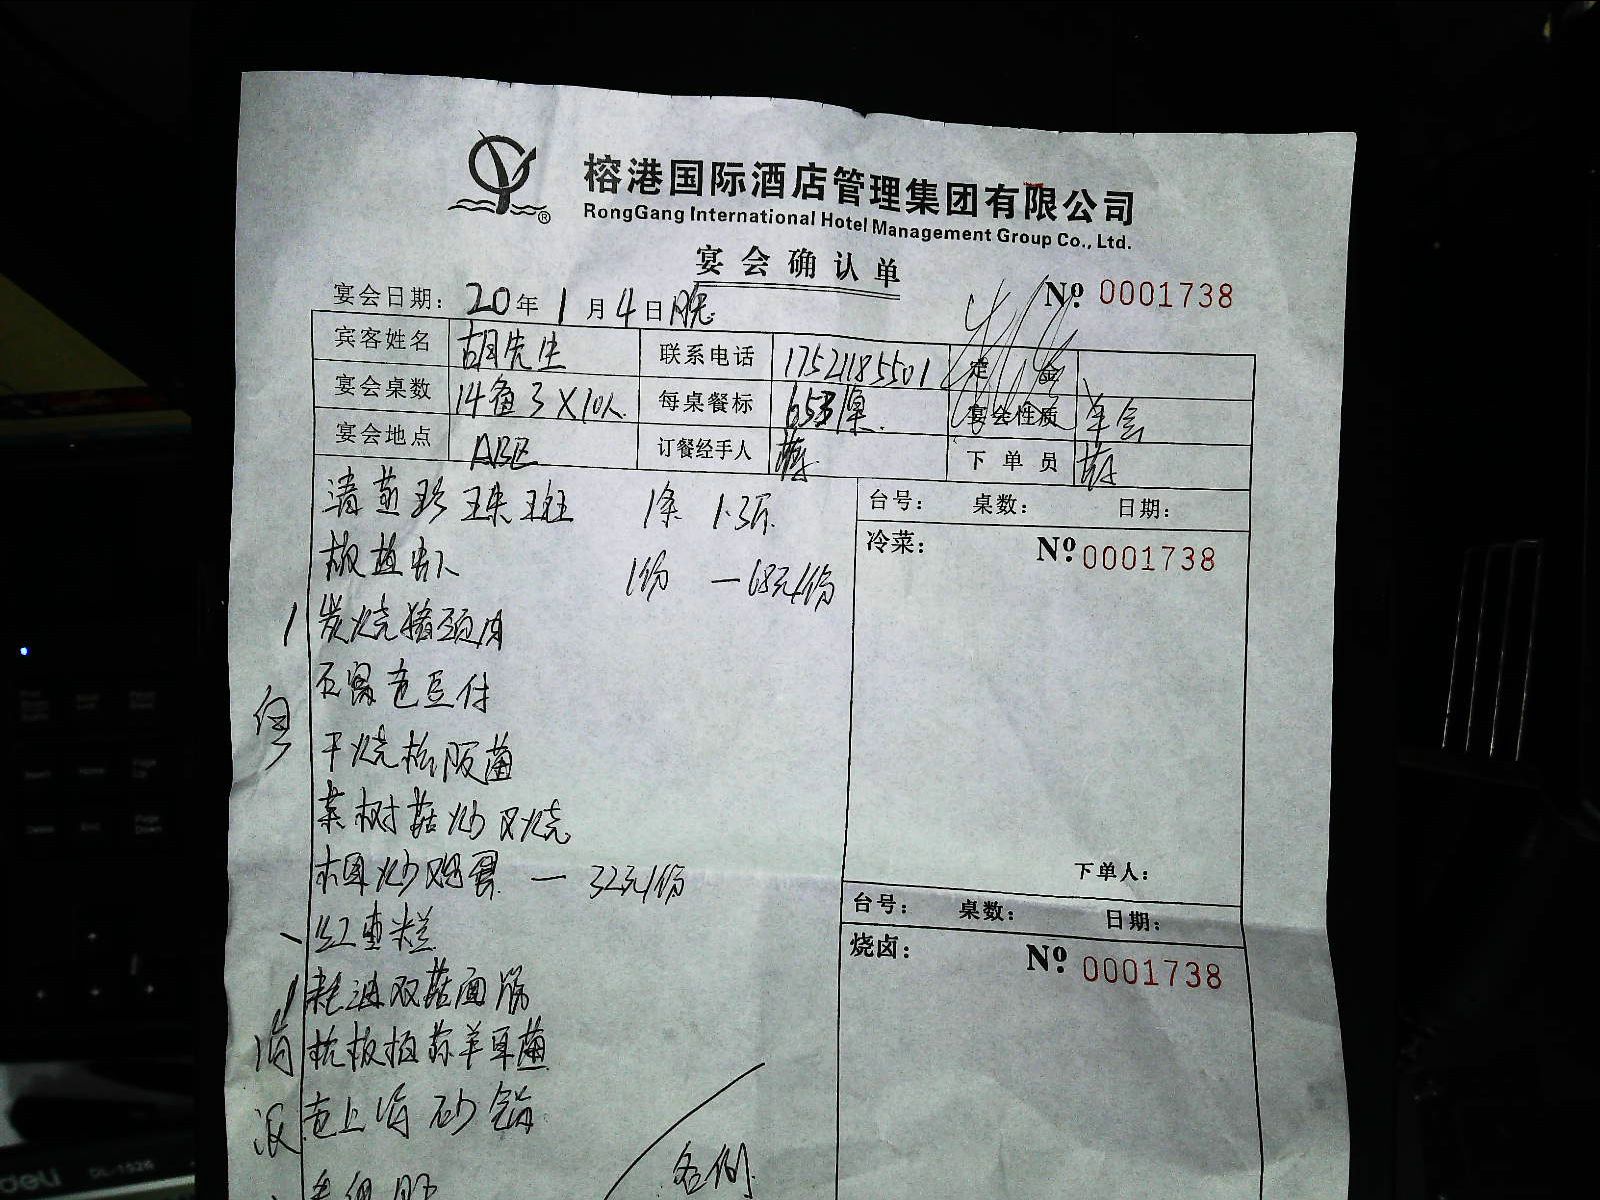 榕港国际酒店管理集团有限公司
RongGang International Hotel Management Group Co., Ltd.
®
宴会确认单
Nº 0001738
宴会日期: 20年1月4日晚
宾客姓名 胡先生 联系电话 17521185501 定金
宴会桌数 14备3X10人 每桌餐标 宴会性质 年会
宴会地点 ABE 订餐经手人 下单员
清蒸珍珠斑 1条 1.3斤
台号: 桌数: 日期:
椒盐 1份 一68元/份
冷菜: Nº 0001738
炭烧猪颈肉
石窝老豆付
干烧松阪菌
茶树菇炒叉烧
炒鸡蛋 一 32元/份
下单人:
红枣糕
台号: 桌数: 日期:
烧卤: Nº 0001738
耗油双菇面筋
羊耳菌
老上海砂锅
各例
deli
DL-1526